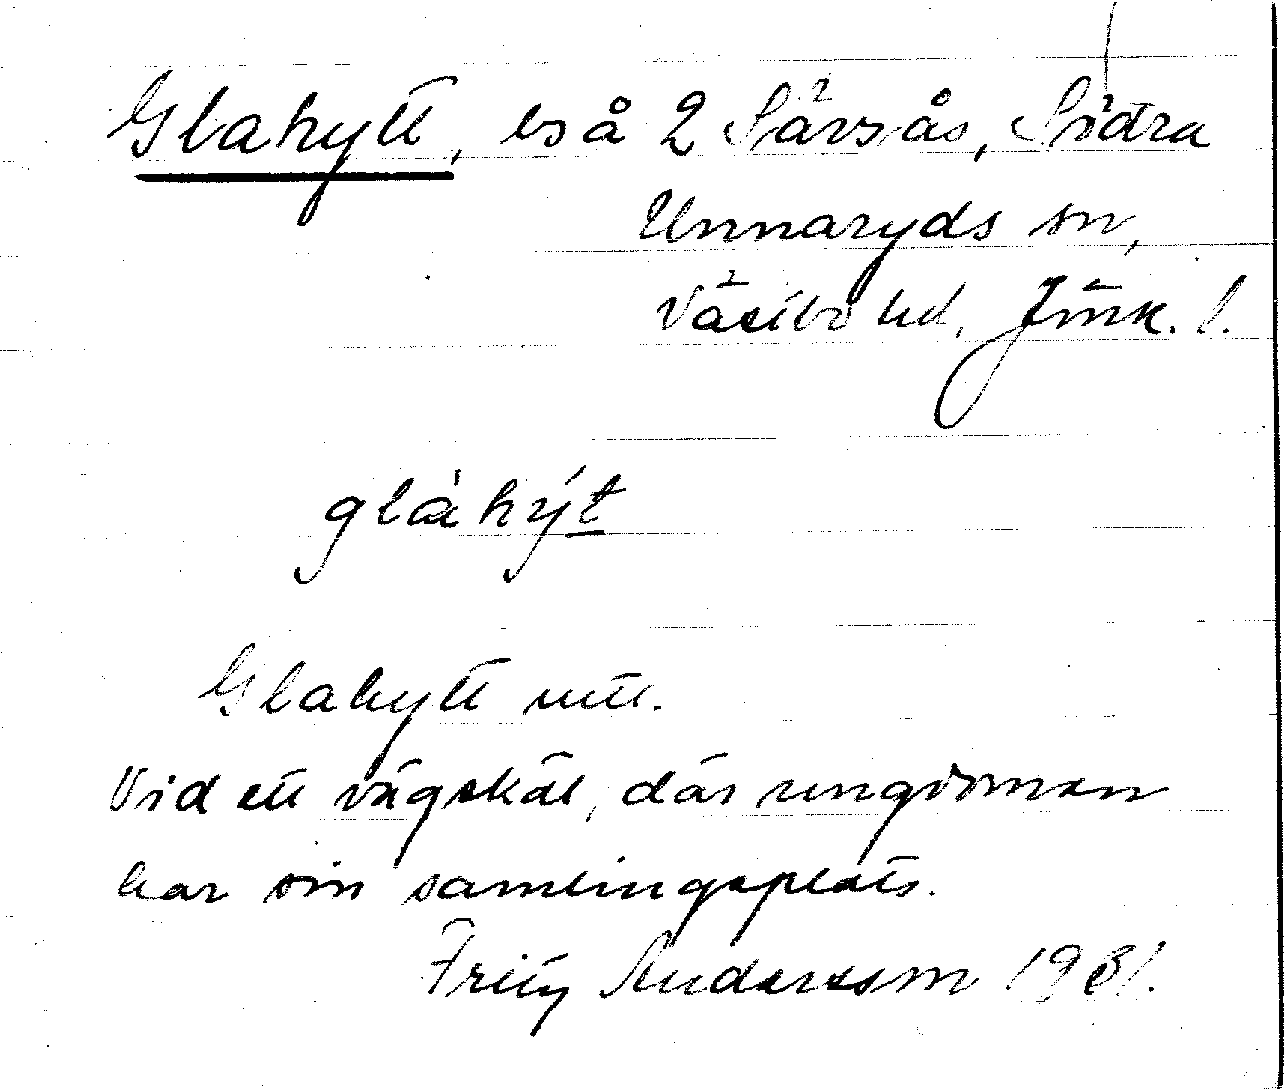 Glahytt, lså 2 Särsås, Södra
Unnaryds sn,
Västbo hd, Jönk. l.
glàhýt
Glahytt utt.
Vid ett vägskäl, där ungdomen
har sin samlingsplats.
Fritz Andersson 1931.